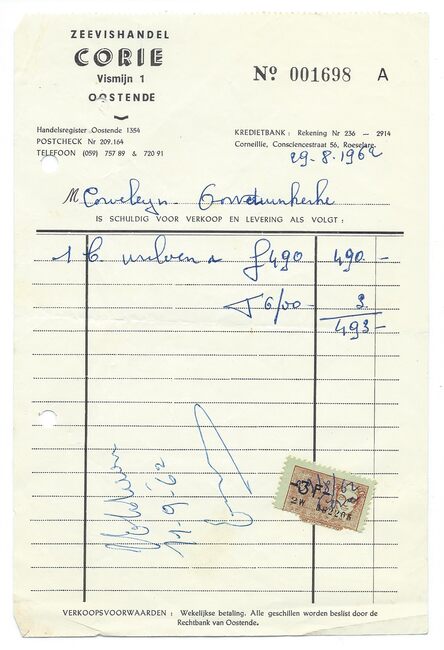 ZEEVISHANDEL
CORIE
Vismijn 1
OOSTENDE
Nº 001698 A
Handelsregister Oostende 1354
POSTCHECK Nr 209.164
TELEFOON (059) 757 89 & 720 91
KREDIETBANK : Rekening Nr 236 — 2914
Corneillie, Consciencestraat 56, Roeselare.
29-8-1962
M
IS SCHULDIG VOOR VERKOOP EN LEVERING ALS VOLGT :
1 490 490 -
6/00 - 3
493 -
62
3 F
2W
VERKOOPSVOORWAARDEN : Wekelijkse betaling. Alle geschillen worden beslist door de
Rechtbank van Oostende.